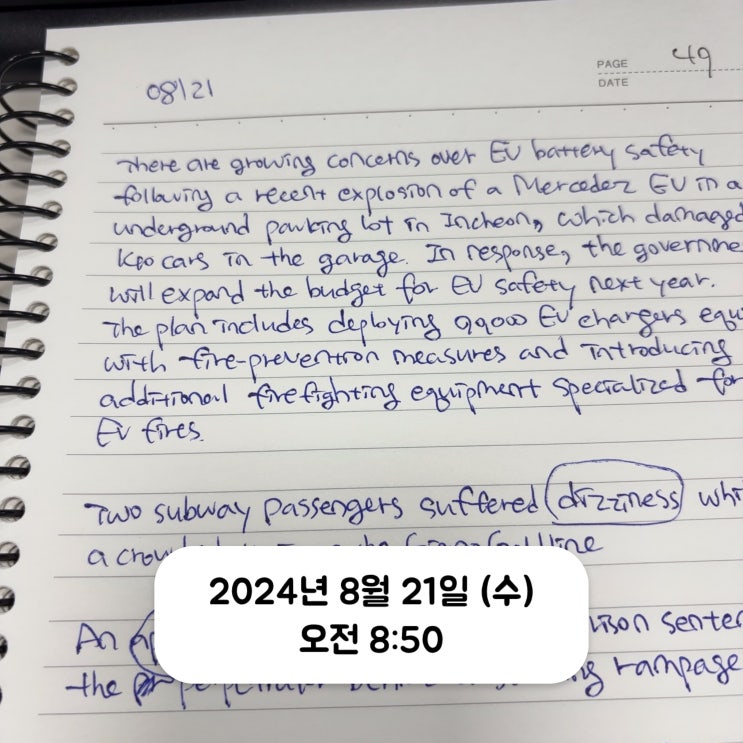 PAGE 49
DATE
08/21
There are growing concerns over EV battery safety
following a recent explosion of a Mercedez EV in a
underground parking lot in Incheon, which damaged
cars in the garage. In response, the governme
will expand the budget for EV safety next year.
The plan includes deploying 99000 EV chargers equi
with fire-prevention measures and introducing
additional firefighting equipment specialized for
EV fires.
Two subway passengers suffered dizziness whi
a crow line
2024년 8월 21일 (수)
오전 8:50
An sente
the rampage